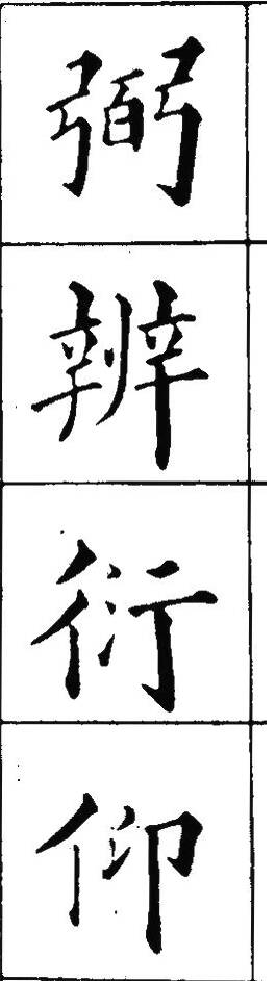 弼辨衍仰